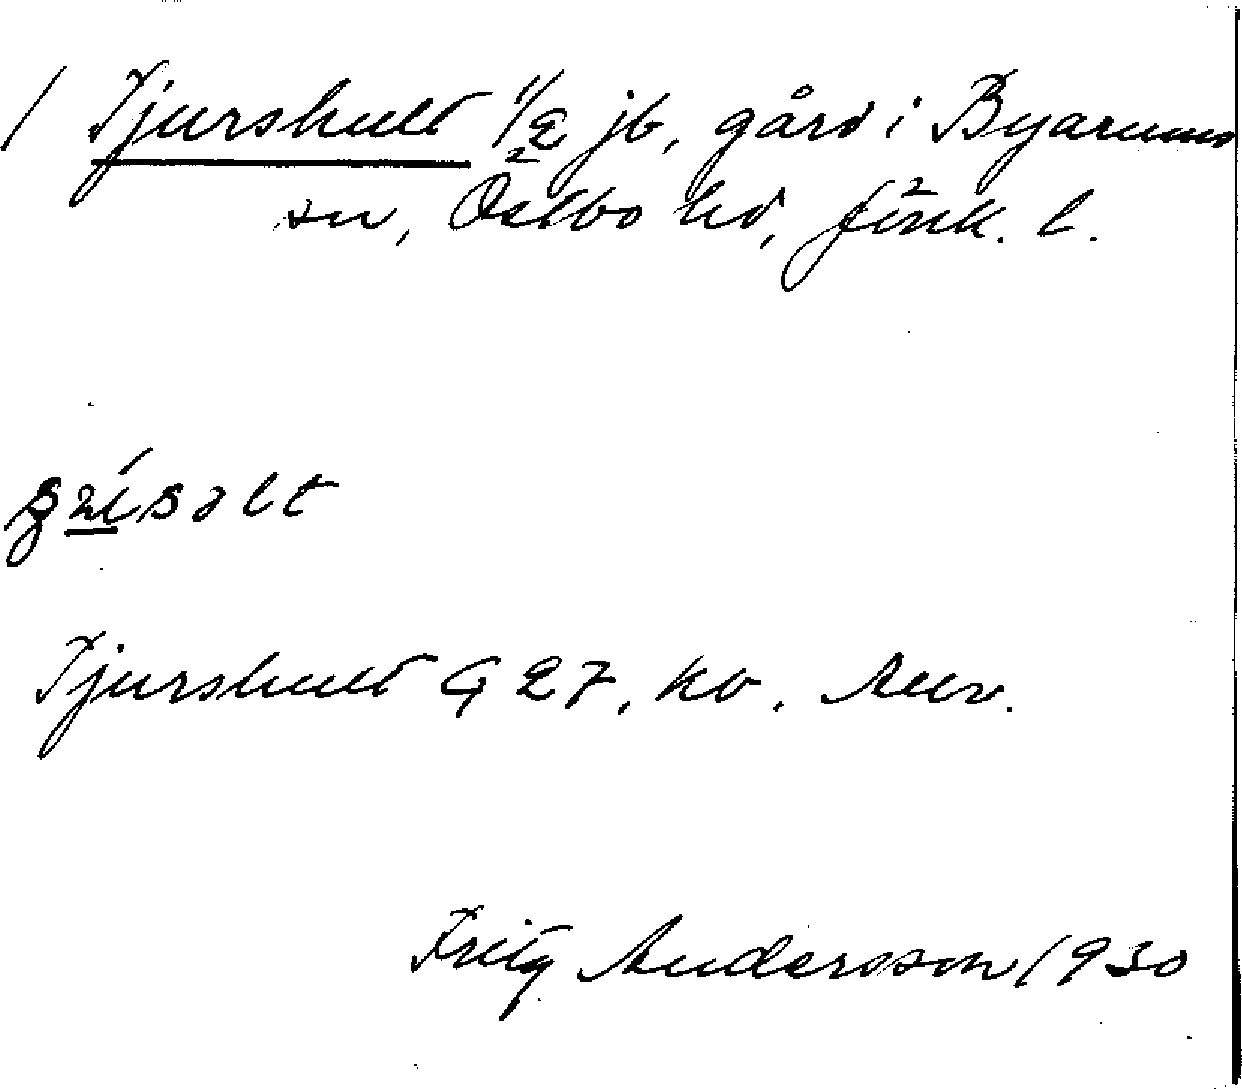 / Tjurshult 1/2 jb, gård i Byarums
sn, Östbo hd, Jönk. l.
Tjurshult G 27, ko.
Fritz Andersson 1930